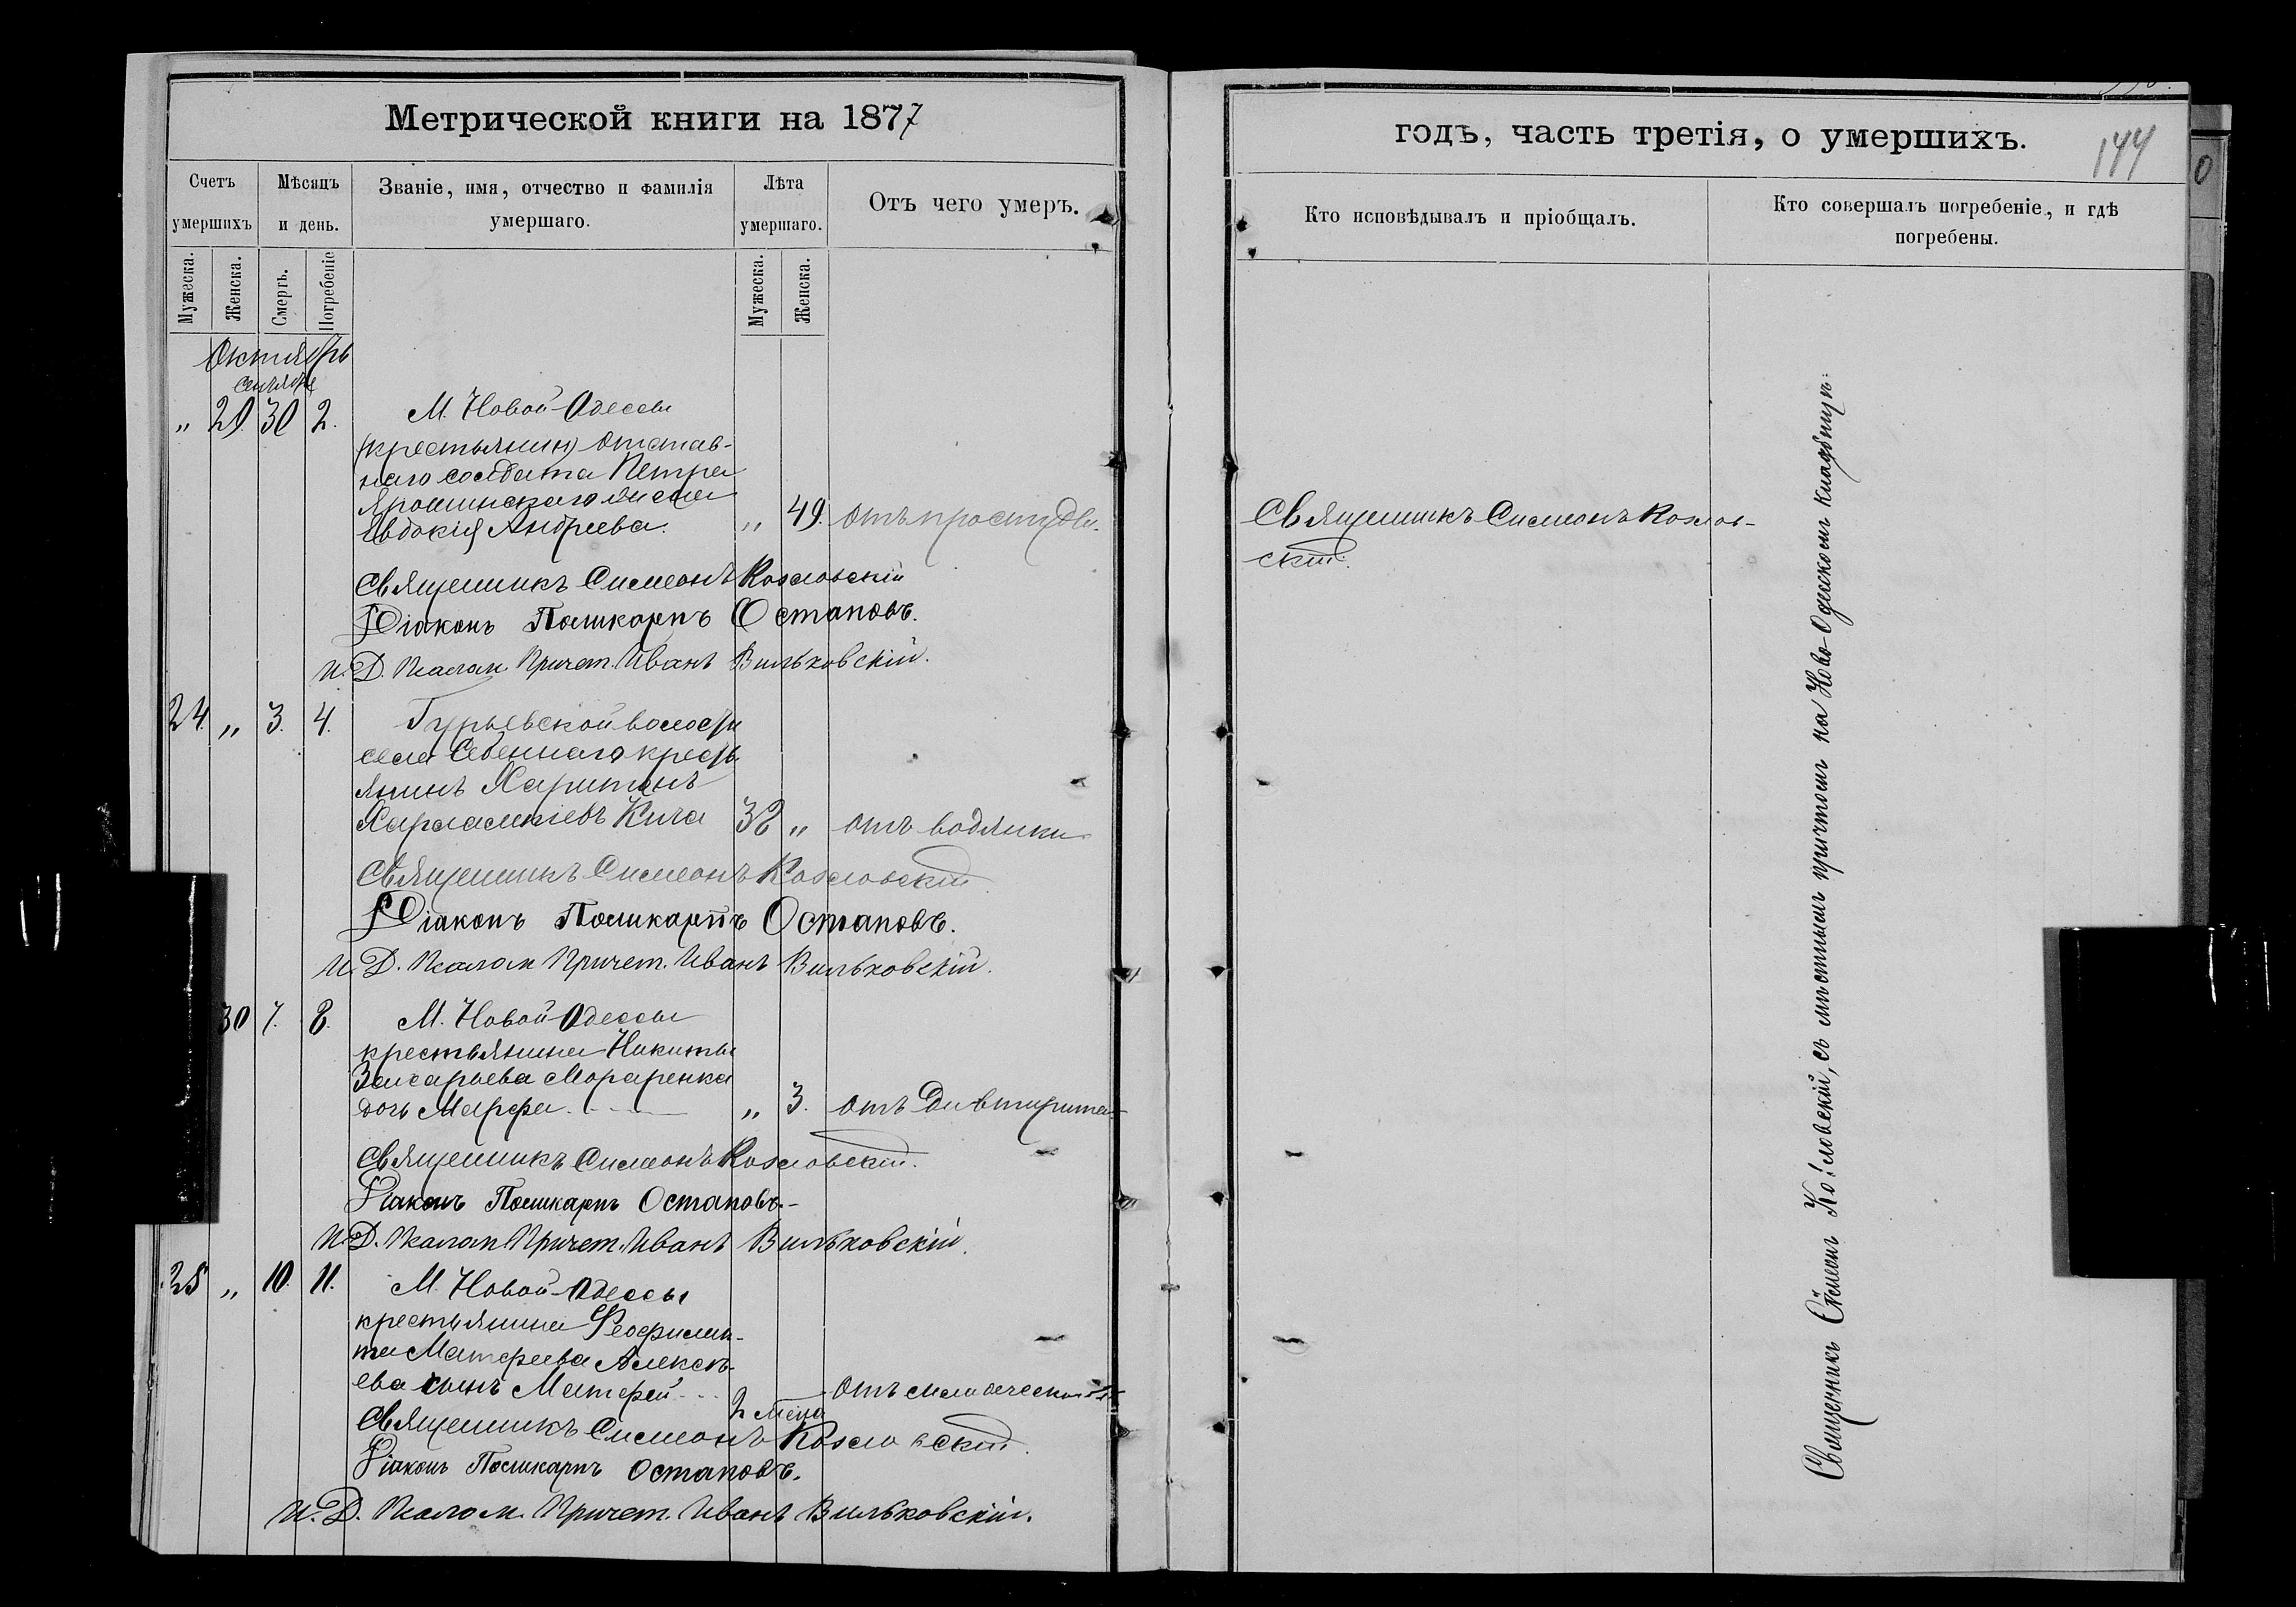 Метрической книги на 1877
годъ, часть третія, о умершихъ.
144
Счетъ умершихъ
Мѣсяцъ и день.
Званіе, имя, отчество и фамилія умершаго.
Лѣта умершаго.
Отъ чего умеръ.
Кто исповѣдывалъ и пріобщалъ.
Кто совершалъ погребеніе, и гдѣ погребены.
Мужеска.
Женска.
Смерть.
Погребеніе
Мужеска.
Женска.
Октябрь
Сентября
„ 29. 30 2.
М. Новой-Одессы
(крестьянин) отстав-
наго солдата Петра
Ярошинскаго жена
Евдокія Андреева. „ 49. отъ простуды.
Священникъ Симеонъ Козлов-
скій.
Священникъ Симеонъ Козловскій
Діаконъ Поликарпъ Остаповъ.
И. Д. Псалом. Причет. Иванъ Вильховскій.
24. „ 3. 4.
Гурьевской волости
села Себеннаго кресть-
янинъ Харитонъ
Харлампіевъ Кича 38 „ отъ водянки
Священникъ Симеонъ Козловскій
Діаконъ Поликарпъ Остаповъ.
И. Д. Псалом Причет. Иванъ Вильховскій.
30 7. 8.
М. Новой-Одессы
крестьянина Никиты
Захарьева Мораренка
дочь Марфа. „ 3. отъ дивтирита
Священникъ Симеонъ Козловскій.
Діаконъ Поликарпъ Остаповъ.-
И. Д. Псалом Причет. Иванъ Вильховскій.
25 „ 10. 11.
М. Новой-Одессы
крестьянина Феофилак-
та Матфеева Алексѣ-
ева сынъ Матфей 2 мѣца отъ младенческой
Священникъ Симеонъ Козловскій.
Діаконъ Поликарпъ Остаповъ.
И. Д. Псалом. Причет. Иванъ Вильховскій.
Священникъ Симеонъ Козловскій, съ мѣстнымъ причтомъ на Ново-Одесскомъ кладбищѣ.